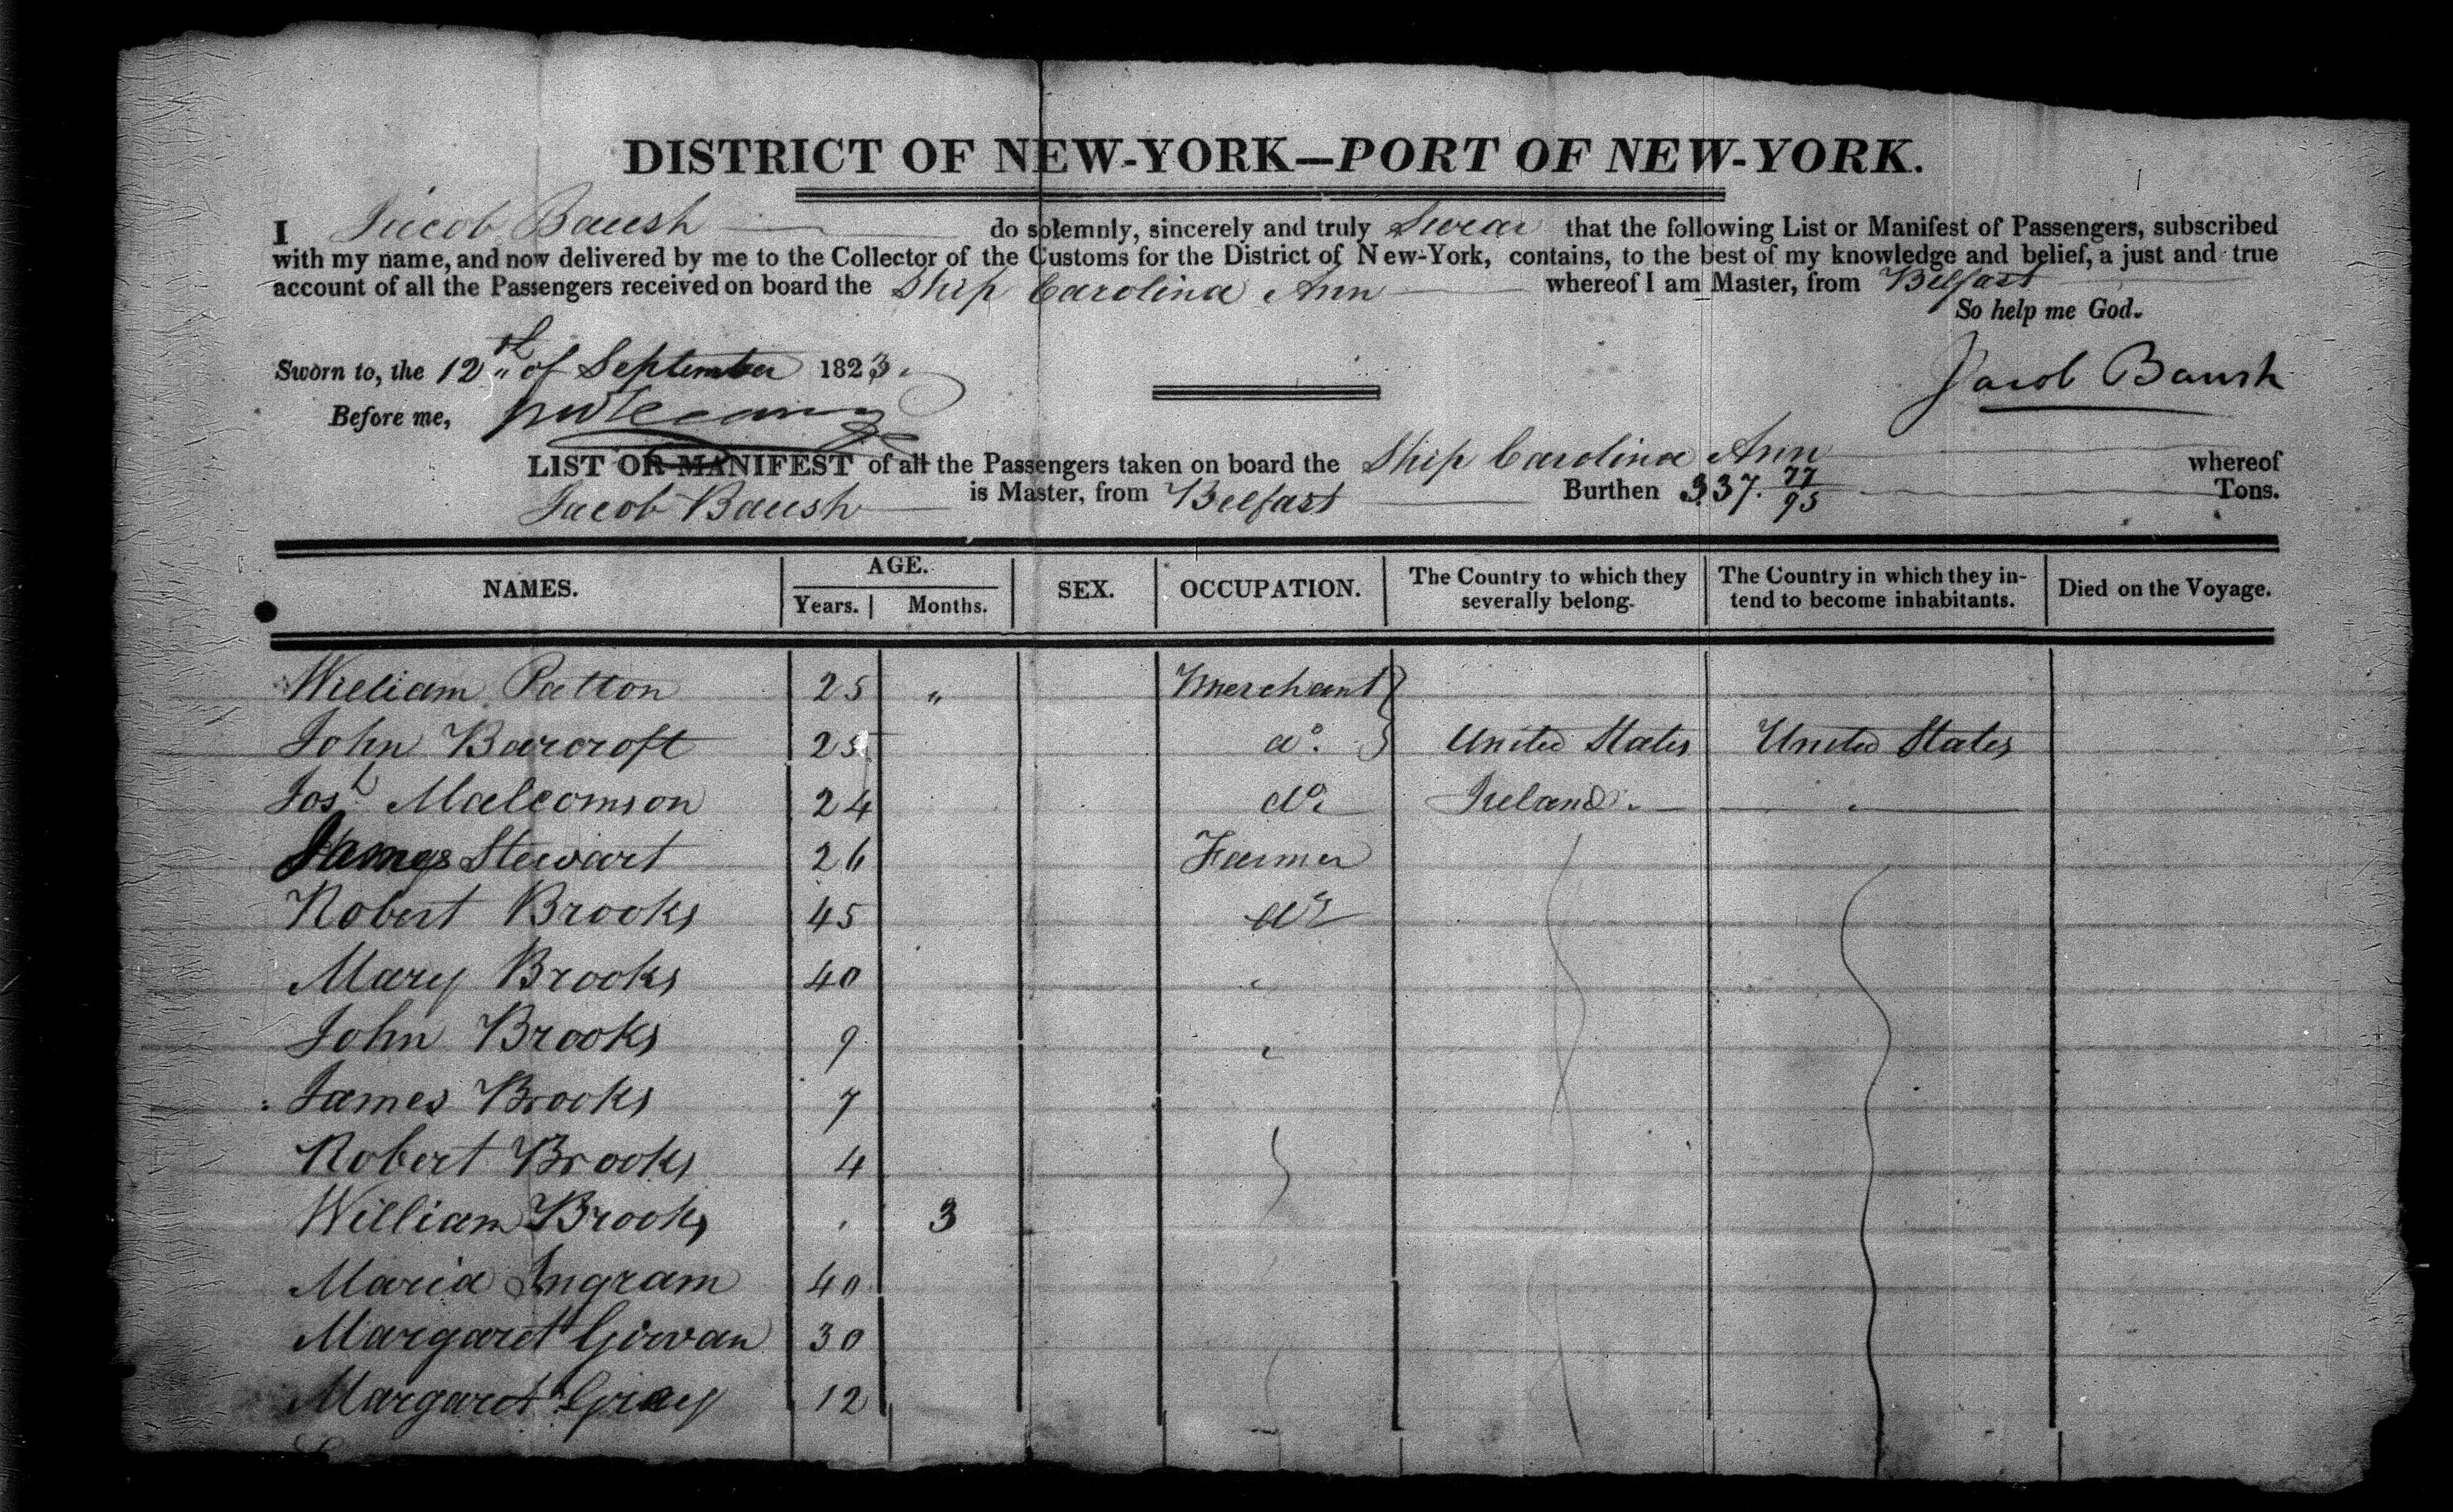 DISTRICT OF NEW-YORK—PORT OF NEW-YORK.
I Jacob Baush do solemnly, sincerely and truly Swear that the following List or Manifest of Passengers, subscribed
with my name, and now delivered by me to the Collector of the Customs for the District of New-York, contains, to the best of my knowledge and belief, a just and true
account of all the Passengers received on board the Ship Carolina Ann whereof I am Master, from Belfast
So help me God.
Sworn to, the 12th of September 1823.
Jacob Baush
Before me,
LIST OR MANIFEST of all the Passengers taken on board the Ship Carolina Ann whereof
Jacob Baush is Master, from Belfast Burthen 337. 77/95 Tons.
NAMES. AGE. Years. Months. SEX. OCCUPATION. The Country to which they severally belong. The Country in which they intend to become inhabitants. Died on the Voyage.
William Patton 25 " Merchant
John Barcroft 25 do. United States United States
Josh. Malcomson 24 do Ireland.
James Stewart 26 Farmer
Robert Brooks 45 do
Mary Brooks 40
John Brooks 9
James Brooks 7
Robert Brooks 4
William Brooks 3
Maria Ingram 40
Margaret Girvan 30
Margaret Gray 12